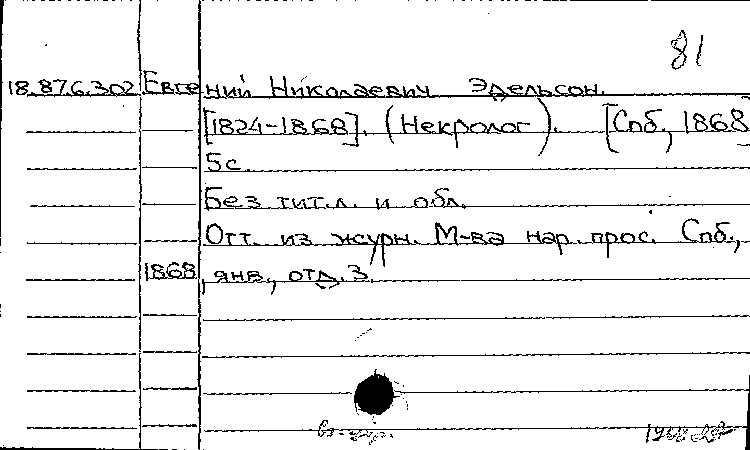 81
18.876.302 Евгений Николаевич Эдельсон.
[1824-1868]. (Некролог). [Спб., 1868]
5с.
Без тит.л. и обл.
Отт. из журн. М-ва нар. прос. Спб.,
1868, янв., отд. 3.